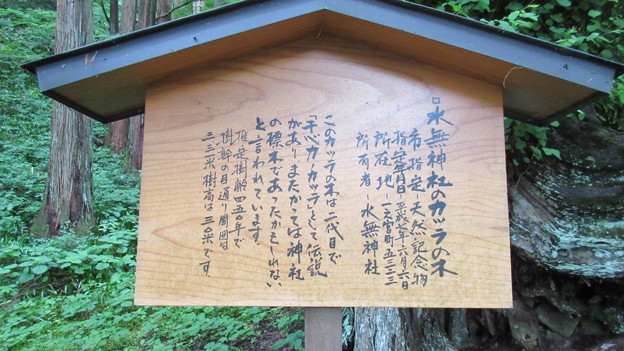 □水無神社のカツラの木
市指定~天然記念物
指定年月日~平成七年六月六日
所在地~一之宮町五三三三
所有者~水無神社
このカツラの木は二代目で
があり またかては神社
の標木であったかもしれない
と言われています。
推定樹齢四五〇年で
樹幹の目通り周囲は
三三米 樹高は三〇米です。